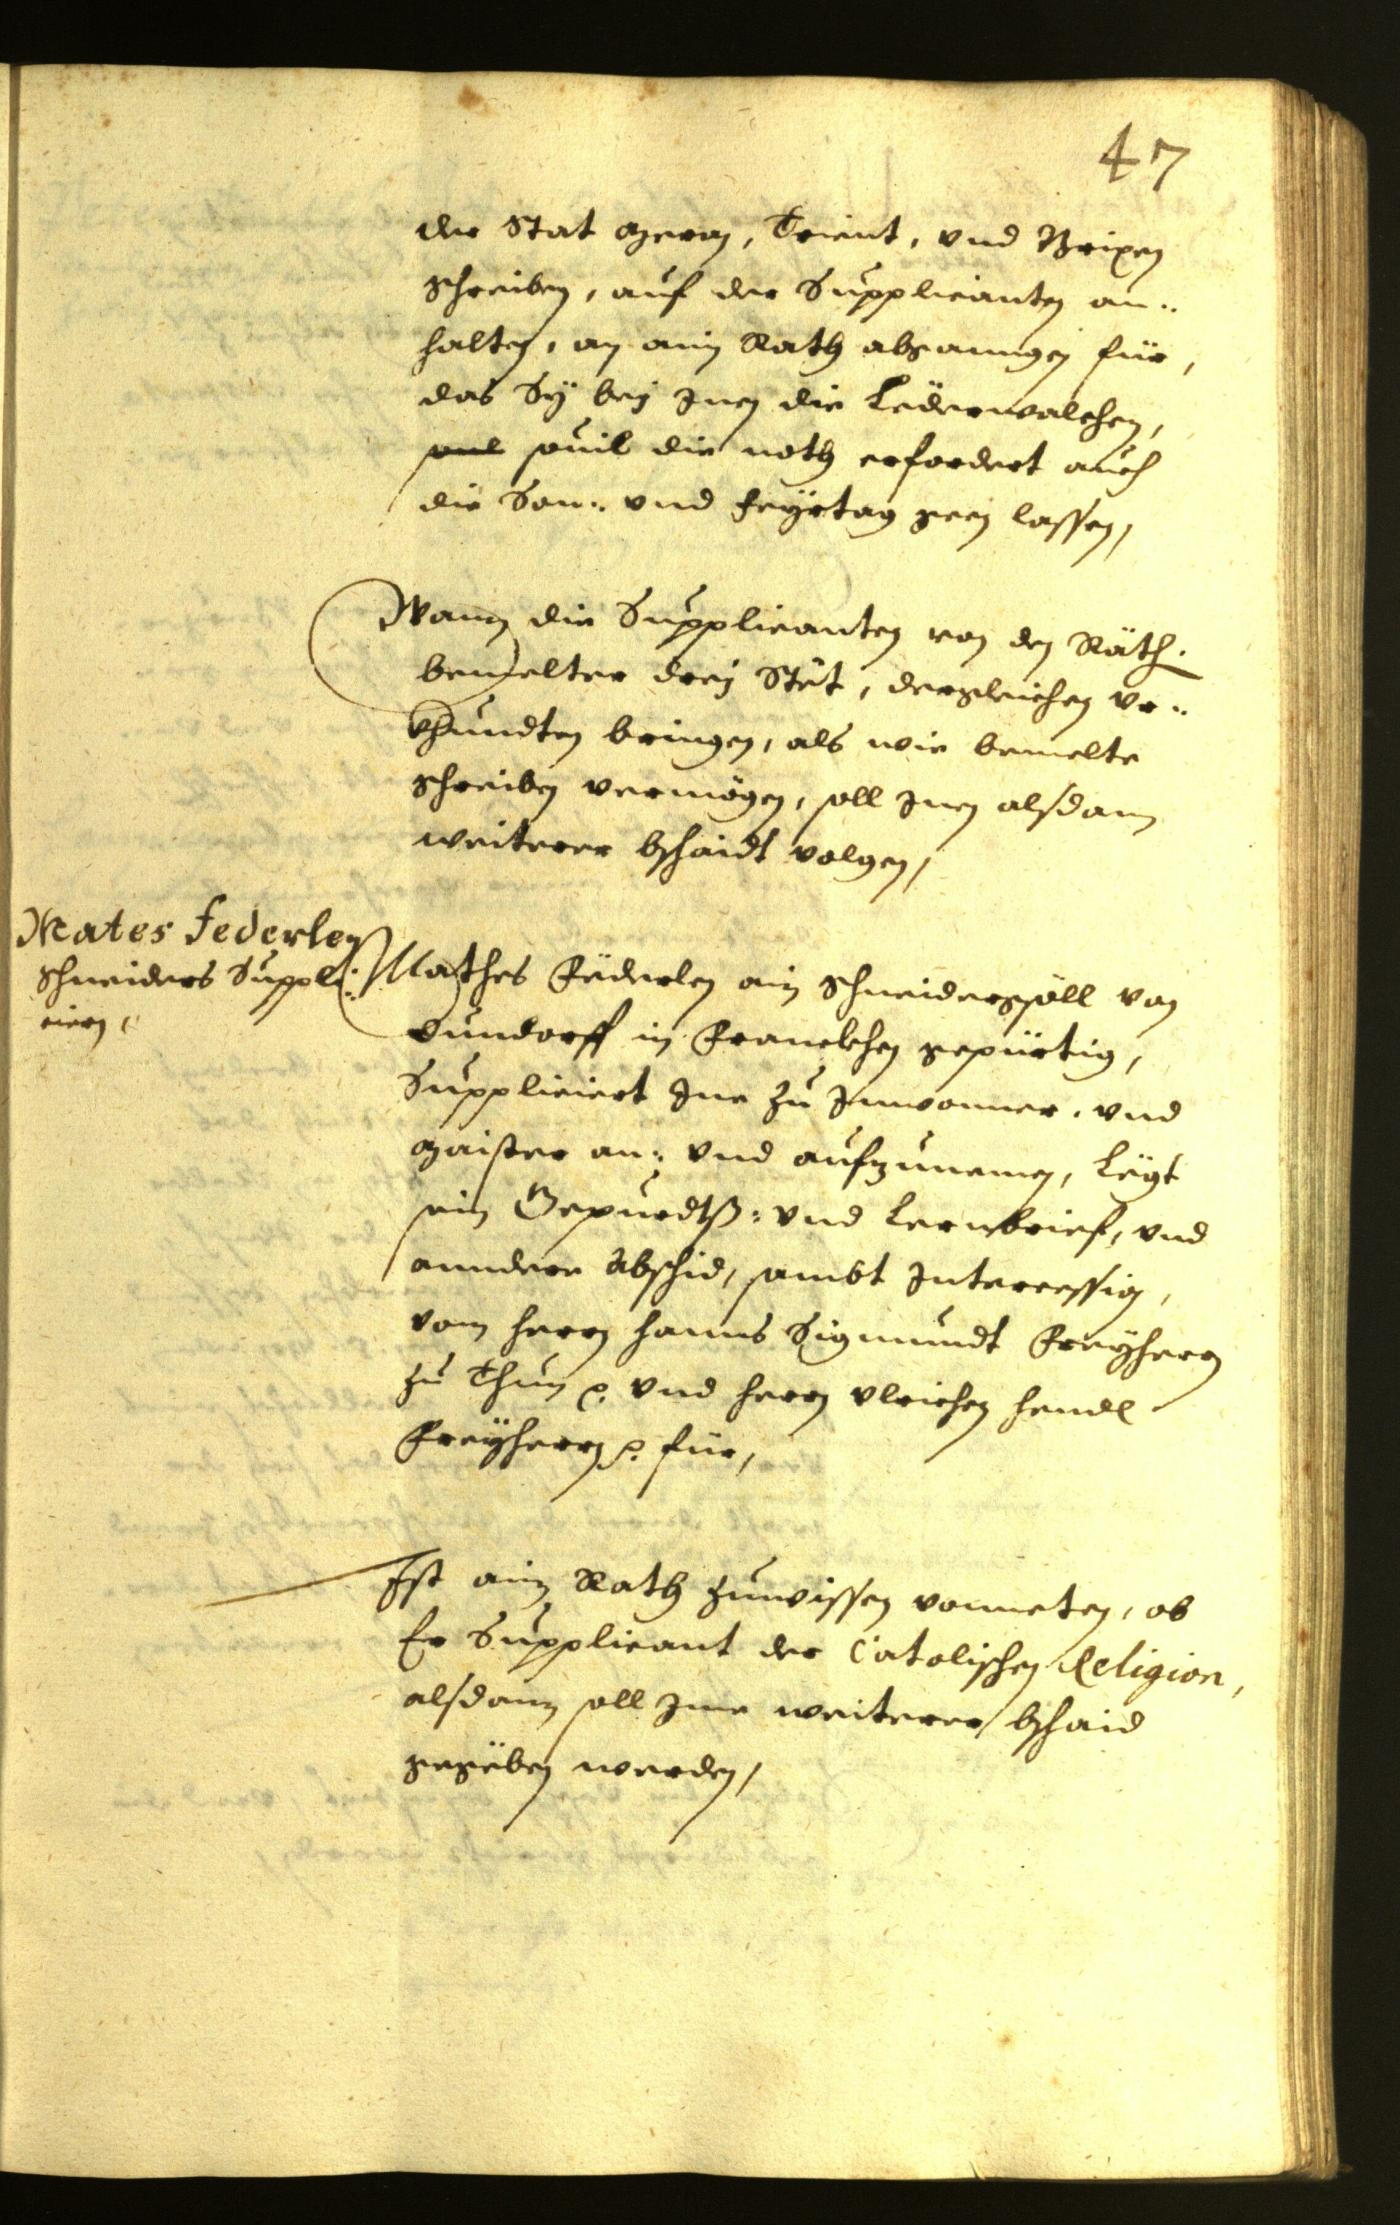 47
der Stat Meran, Trient, vnd Brixen
schreiben, auf der Supplicanten an¬
halten, an ain Rath abganngen für,
das Sy bey Inen die Lederwalchen,
souil die noth erfordert auch
die Son¬ vnd Feyrtag geen lassen,
Wann die Supplicanten von den Räth.
bemelter drey Stët, dergleichen vr¬
khundten bringen, als wie bemelte
schreiben vermögen, soll Inen alsdann
weiterer bschaidt volgen,
Mates Federlen
Schneiders Suppli¬
ciern,
Mathes Federlen ain Schneidergsöll von
Dundorff in Franckhen gepürtig,
Suppliciert Ine zu Innwonner, vnd
Maister an¬ vnd aufzunemen, Legt
sein Gepurdtß¬ vnd Lernbrief, vnd
anndere Abschid, sambt Intercession,
vom herrn Hanns Sigmundt Freyherrn
zu Thun ꝛc. vnd herrn Vlrichen Hendl
Freyherrn ꝛc. für,
Ist ain Rath zuwissen vonneten, ob
Er Supplicant der Catolischen Religion,
alsdann soll Ime weiterer bschaid
gegëben werden,